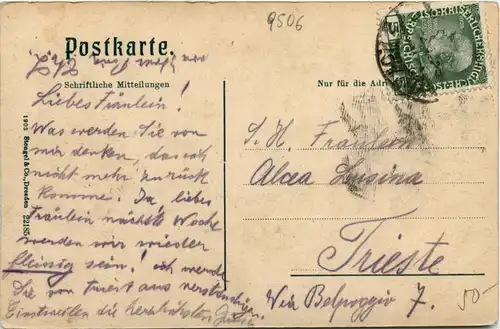 9506
Postkarte.
Schriftliche Mitteilungen
Nur für die
Liebes Fräulein!
Was werden Sie von
mir denken, dass ich
nicht mehr zurück
komme. Ja, liebes
Fräulein nächste Woche
werden wir wieder
fleissig sein! ich werde
Sie von
aus verständigen.
Einstweilen die herzlichsten Grüsse
1903 Stengel & Co., Dresden 22185
S. H. Fräulein
Alcea Lusina
Trieste
Via Belpoggio 7.
50-